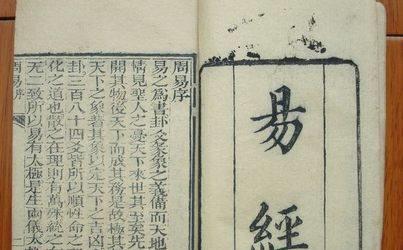 易經
周易序
易之爲書卦爻彖象之義備而天地
情見聖人之憂天下來世其至
開其物後天下而成其務是故極其
天下之象著其象以定天下之吉凶
卦三百八十四爻皆所以順性命之
化之道也散之在理則有萬殊統之
无二致所以易有太極是生兩儀太
周易序